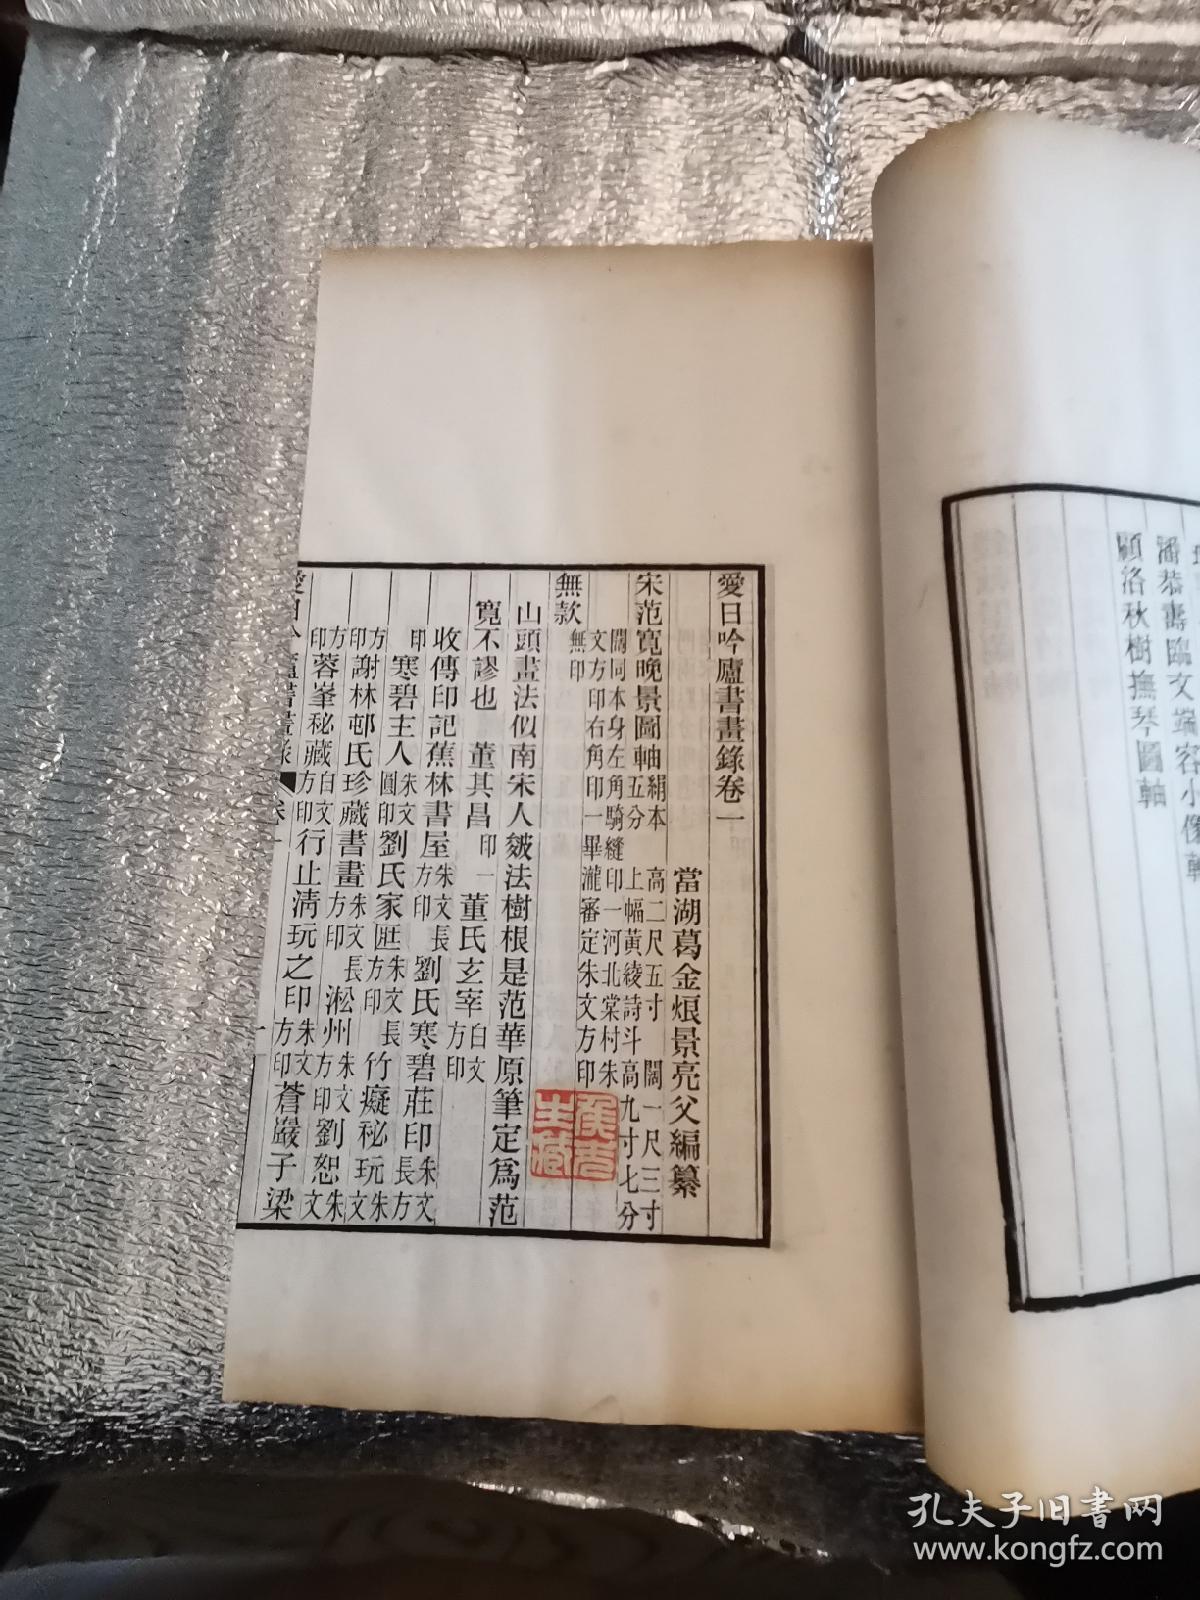 愛日吟廬書畫錄卷一
當湖葛金烺景亮父編纂
宋范寬晚景圖軸絹本 高二尺五寸 闊一尺三寸
五分 上幅黃綾詩斗高九寸七分
闊同本身左角騎縫印一河北棠村朱
文方印右角印一畢瀧審定朱文方印
無款無印
山頭畫法似南宋人皴法樹根是范華原筆定爲范
寬不謬也 董其昌 印一 董氏玄宰白文方印
收傳印記蕉林書屋朱文長方印 劉氏寒碧莊印朱文長方
印 寒碧主人朱文圓印 劉氏家匨朱文長方印 竹癡秘玩朱文
方印 謝林邨氏珍藏書畫朱文長方印 淞州朱文方印 劉恕朱文
方印 蓉峯秘藏白文方印 行止淸玩之印朱文方印 蒼巖子梁
愛日吟廬書畫錄 卷一
一
潘恭壽臨文端容小像軸
顧洛秋樹撫琴圖軸
孔夫子旧书网
www.kongfz.com